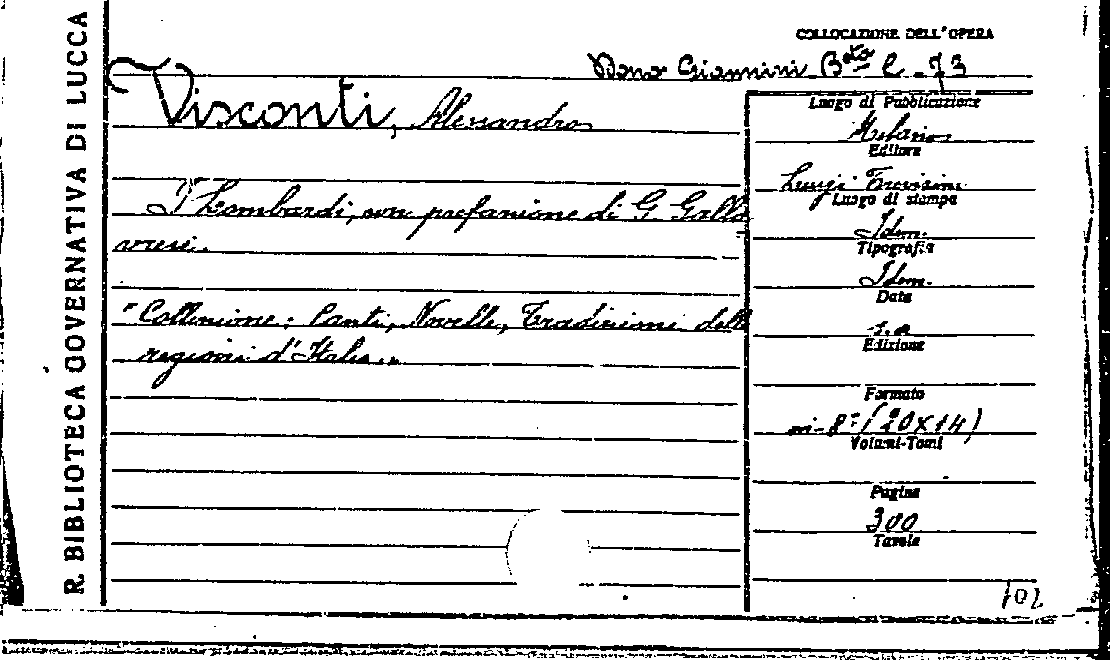 R. BIBLIOTECA GOVERNATIVA DI LUCCA
COLLOCAZIONE DELL'OPERA
Dono Giannini Bta C. 73
Visconti, Alessandro
I Lombardi, con prefazione di G Galla
varesi.
"Collezione: Canti, Novelle, Tradizioni delle
regioni d'Italia"
Luogo di Pubblicazione
Milano
Editore
Luigi Trevisini
Luogo di stampa
Idem.
Tipografia
Idem.
Data
s.a
Edizione
Formato
in-8° (20x14)
Volumi-Tomi
Pagine
300
Tavole
102